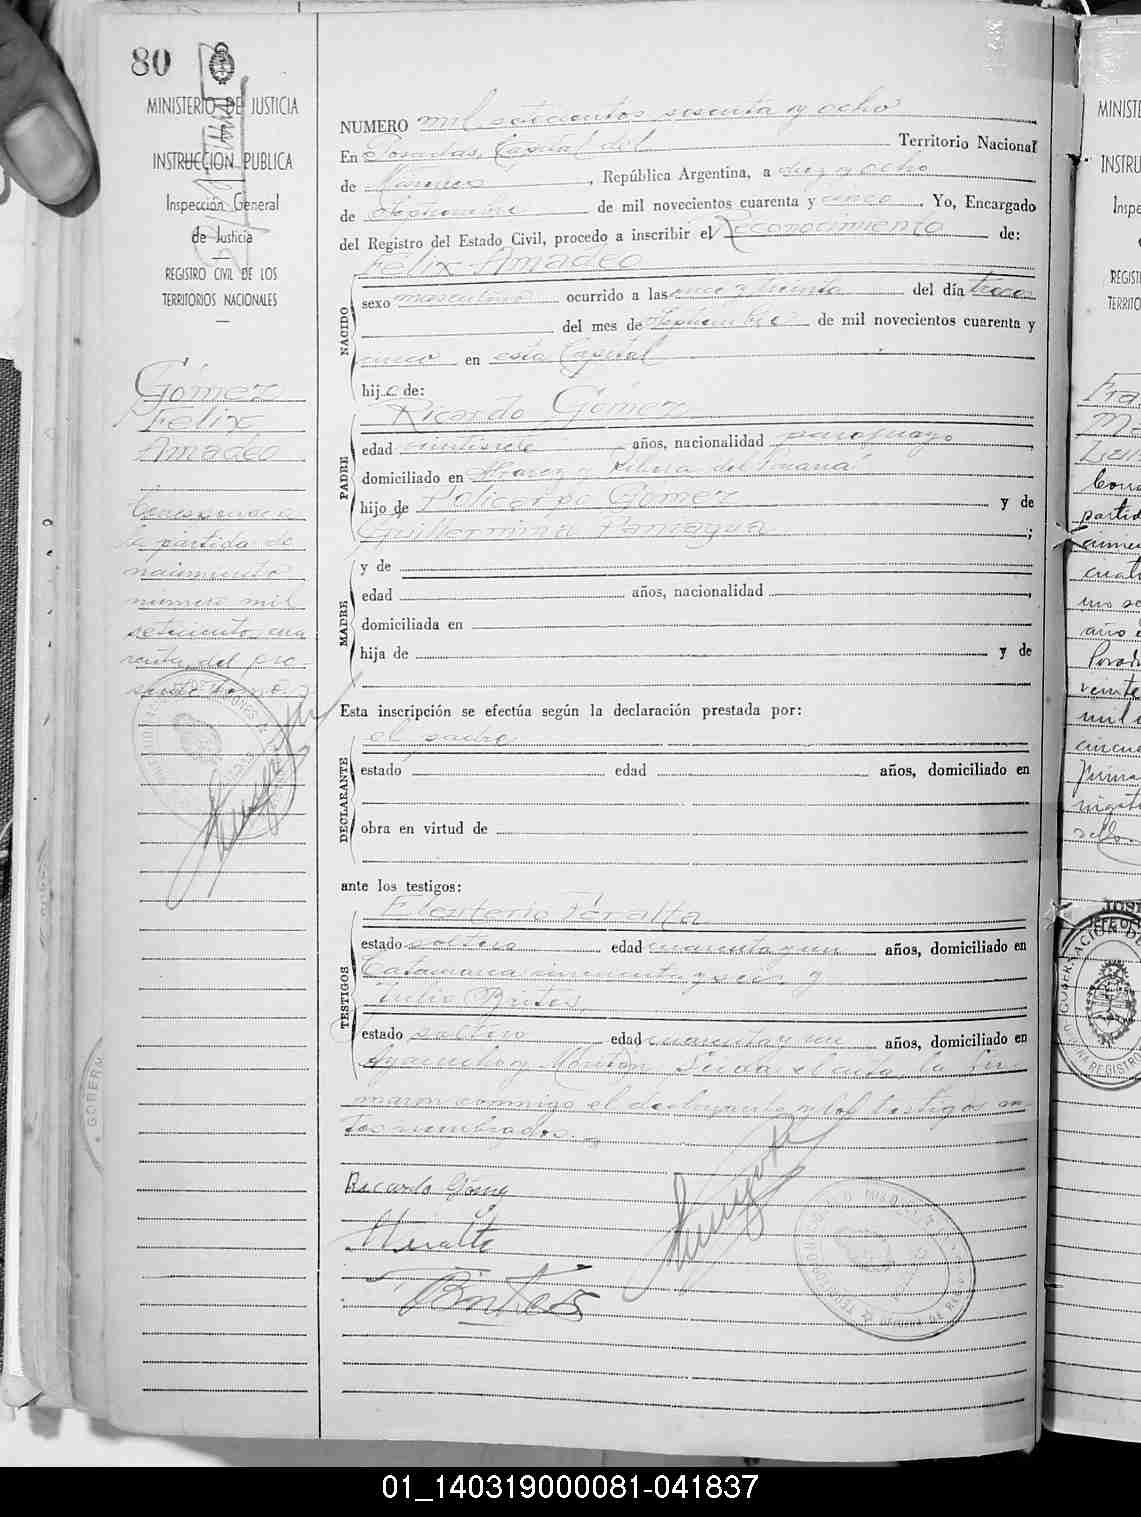 80
MINISTERIO DE JUSTICIA
INSTRUCCION PUBLICA
Inspección General
de Justicia
REGISTRO CIVIL DE LOS
TERRITORIOS NACIONALES
Gómez
Felix
Amadeo
Corresponde a
la partida de
nacimiento
número mil
setecientos cua
renta, del pre
sente tomo.
NUMERO mil setecientos sesenta y ocho
En Posadas, Capital del Territorio Nacional
de Misiones, República Argentina, a diez y ocho
de Septiembre de mil novecientos cuarenta y cinco. Yo, Encargado
del Registro del Estado Civil, procedo a inscribir el Reconocimiento de:
Félix Amadeo
NACIDO
sexo masculino ocurrido a las once y treinta del día trece
del mes de Septiembre de mil novecientos cuarenta y
cinco en esta Capital
hijo de:
Ricardo Gómez
PADRE
edad veintisiete años, nacionalidad paraguayo
domiciliado en Alvarez y Ribera del Paraná
hijo de Policarpo Gómez y de
Guillermina Paniagua;
MADRE
y de
edad años, nacionalidad
domiciliada en
hija de y de
Esta inscripción se efectúa según la declaración prestada por:
el padre
DECLARANTE
estado edad años, domiciliado en
obra en virtud de
ante los testigos:
TESTIGOS
Eleuterio Peralta
estado soltero edad cuarenta y un años, domiciliado en
Catamarca cincuenta y seis y
Julio Britos
estado soltero edad cuarenta y un años, domiciliado en
Ayacucho y Moritan. Leida el acta, la fir
maron conmigo el declarante y los testigos an
tes nombrados.
Ricardo Gómez
Britos
GOBERN
MINISTE
INSTRU
Inspe
REGIST
TERRITO
01_140319000081-041837